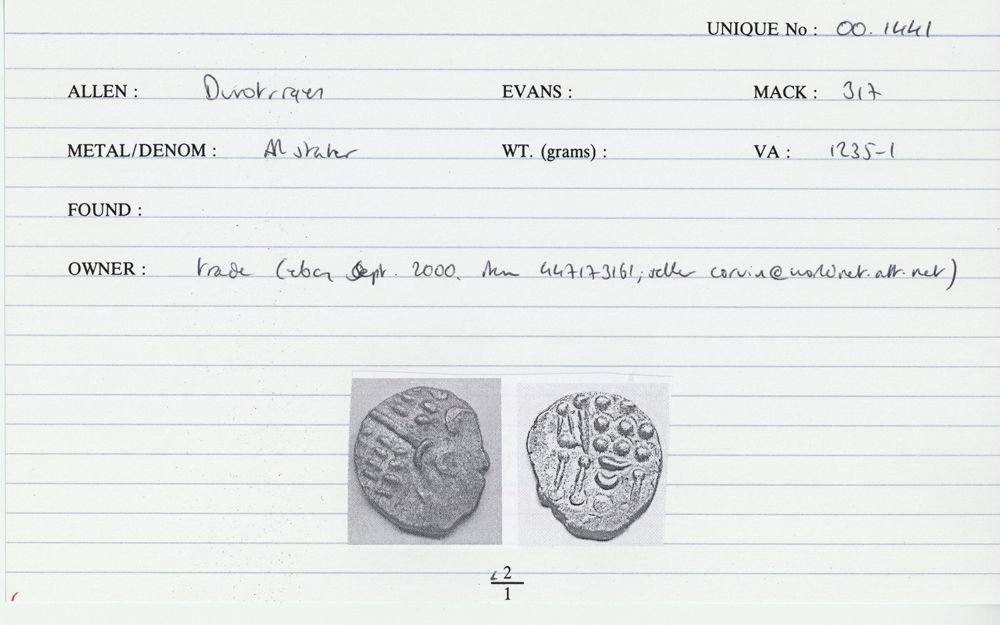 UNIQUE No : 00.1441
ALLEN : Durotrigan EVANS : MACK : 317
METAL/DENOM : AR stater WT. (grams) : VA : 1235-1
FOUND :
OWNER : trade (ebay Sept. 2000. Item 447173161; seller corvin@worldnet.att.net)
2
1